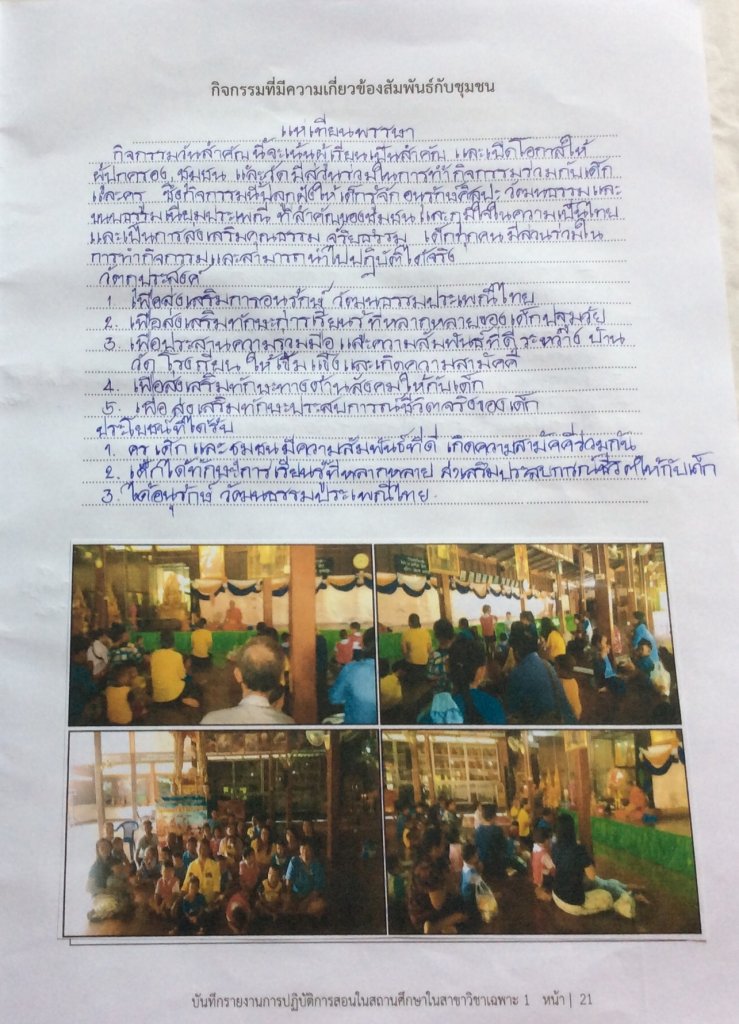 กิจกรรมที่มีความเกี่ยวข้องสัมพันธ์กับชุมชน
แห่เทียนพรรษา
กิจกรรมวันสำคัญนี้จะเน้นผู้เรียนเป็นสำคัญ และเปิดโอกาสให้
ผู้ปกครอง ชุมชน และวัด มีส่วนร่วมในการทำกิจกรรมร่วมกับเด็ก
และครู ซึ่งกิจกรรมนี้ปลูกฝังให้เด็กรู้จัก อนุรักษ์ศิลปะ วัฒนธรรมและ
ขนบธรรมเนียมประเพณี ที่สำคัญของชุมชน และภูมิใจในความเป็นไทย
และเป็นการส่งเสริมคุณธรรม จริยธรรม เด็กทุกคน มีส่วนร่วมใน
การทำกิจกรรมและสามารถนำไปปฏิบัติได้จริง
วัตถุประสงค์
1. เพื่อส่งเสริมการอนุรักษ์ วัฒนธรรมประเพณีไทย
2. เพื่อส่งเสริมทักษะการเรียนรู้ ที่หลากหลายของเด็กปฐมวัย
3. เพื่อประสานความร่วมมือ และความสัมพันธ์ที่ดี ระหว่าง บ้าน
วัด โรงเรียน ให้เข้มแข็งและเกิดความสามัคคี
4. เพื่อส่งเสริมทักษะทางด้านสังคมให้กับเด็ก
5. เพื่อส่งเสริมทักษะประสบการณ์ชีวิตจริงของเด็ก
ประโยชน์ที่ได้รับ
1. ครู เด็ก และชุมชน มีความสัมพันธ์ที่ดี เกิดความสามัคคีร่วมกัน
2. เด็กได้ทักษะการเรียนรู้ที่หลากหลาย ส่งเสริมประสบการณ์ชีวิตให้กับเด็ก
3. ได้อนุรักษ์ วัฒนธรรมประเพณีไทย.
บันทึกรายงานการปฏิบัติการสอนในสถานศึกษาในสาขาวิชาเฉพาะ 1 หน้า | 21